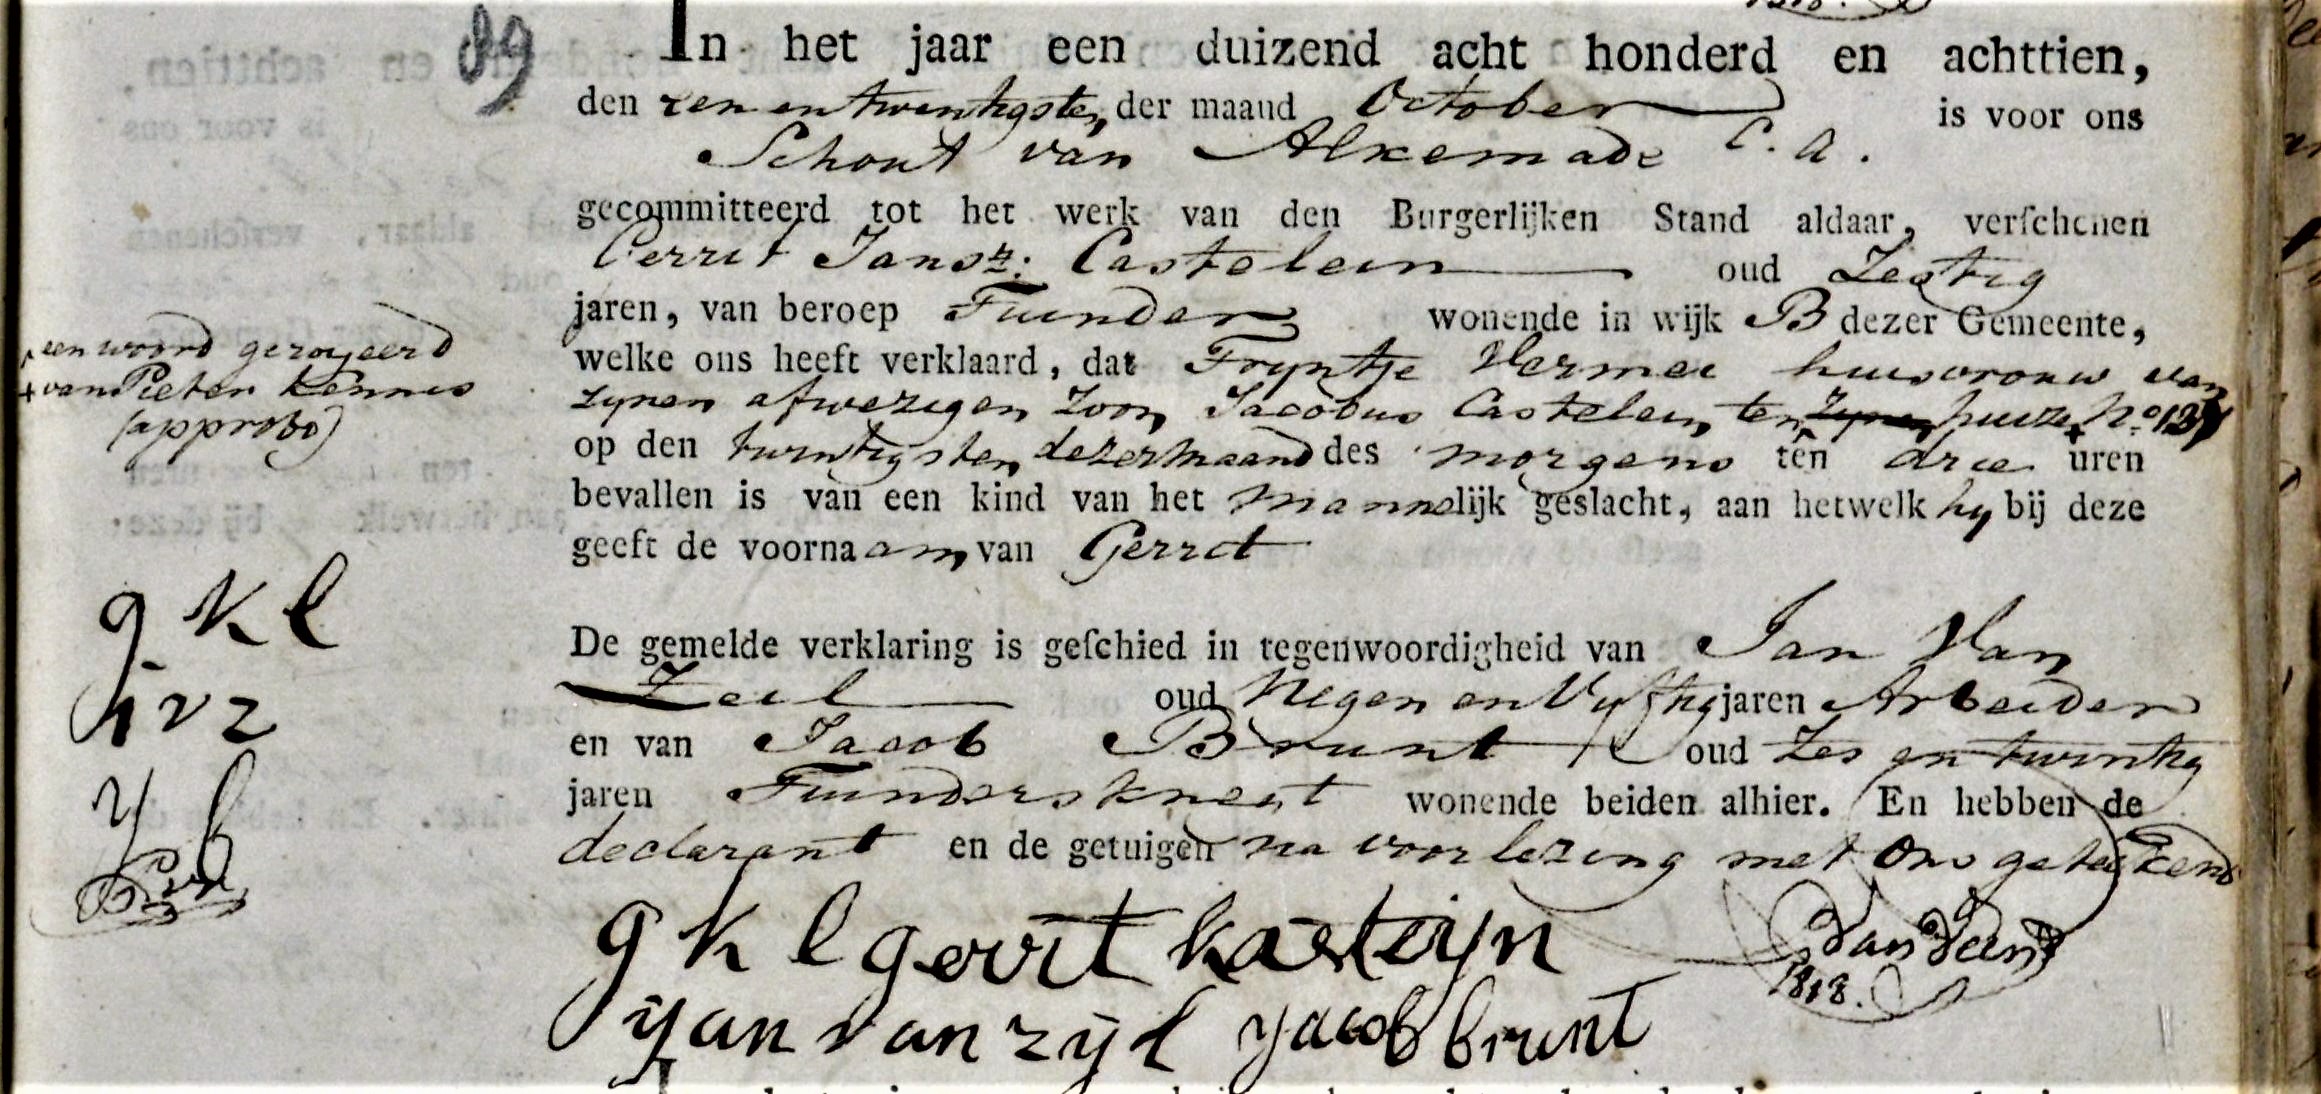 89
In het jaar een duizend acht honderd en achttien,
den een en twentigsten der maand October is voor ons
Schout van Alkemade C. A.
gecommitteerd tot het werk van den Burgerlijken Stand aldaar, verſchenen
Gerrit Jansz: Castelein oud Zestig
jaren, van beroep Tuinder wonende in wijk B dezer Gemeente,
welke ons heeft verklaard, dat Tryntje Vermei huisvrouw van
zynen afwezigen Zoon Jacobus Castelein, ten zynen huize + No. 127
op den twintigsten dezer Maand des morgens ten drie uren
bevallen is van een kind van het mannelijk geslacht, aan hetwelk hy bij deze
geeft de voornaam van Gerrit
een woord geroyeerd
+ van Pieter Kennis
(approbo)
De gemelde verklaring is geſchied in tegenwoordigheid van Jan Van
Zeil oud Negen en Vyftig jaren Arbeider
en van Jacob Brunt oud Zes en twintig
jaren Tuindersknegt wonende beiden alhier. En hebben de
declarant en de getuigen na voorlezing met ons getekend
g k l
j v z
y b
g k l gerrit kasteijn
yan van zijl yacob brunt
1818.